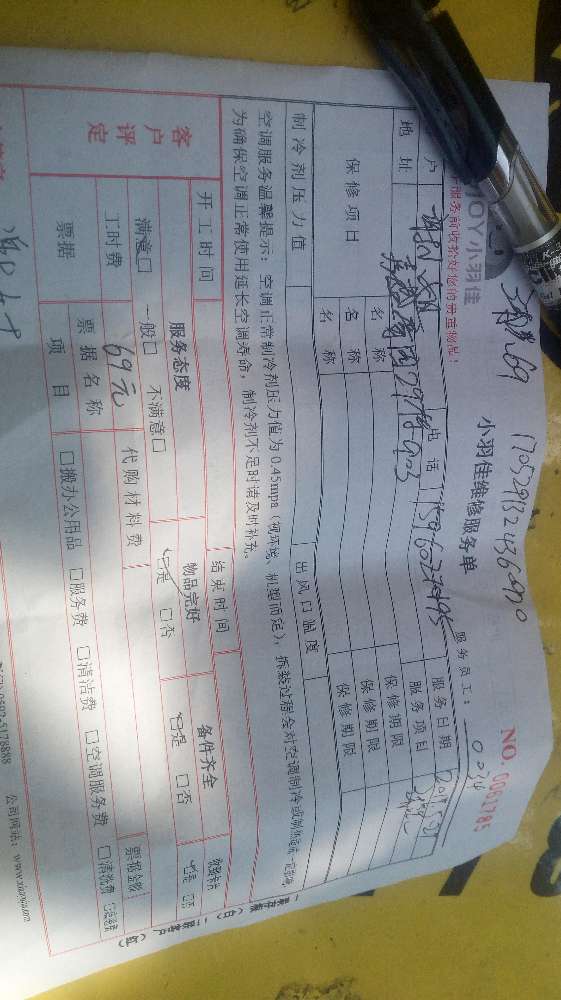 清洗69
17052913243600010
JOY小羽佳
小羽佳维修服务单
NO. 0061785
服务前收拾好您的贵重物品！
服务员工：0034
户
电话
服务日期
地址
服务项目
保修项目
名称
保修期限
名称
保修期限
名称
保修期限
制冷剂压力值
出风口温度
空调服务温馨提示：空调正常制冷剂压力值为0.45mpa（视环境、机型而定），拆装过程会对空调制冷或制热造成一定影响，
为确保空调正常使用延长空调寿命，制冷剂不足时请及时补充。
开工时间
结束时间
客户评定
服务态度
物品完好
备件齐全
满意□ 一般□ 不满意□
是 □否
是 □否
是 □否
工时费
69元
代购材料费
票据
票据名称
票据金额
项目
□搬办公用品 □服务费 □清洁费 □空调服务费 □清洗费
公司网站：